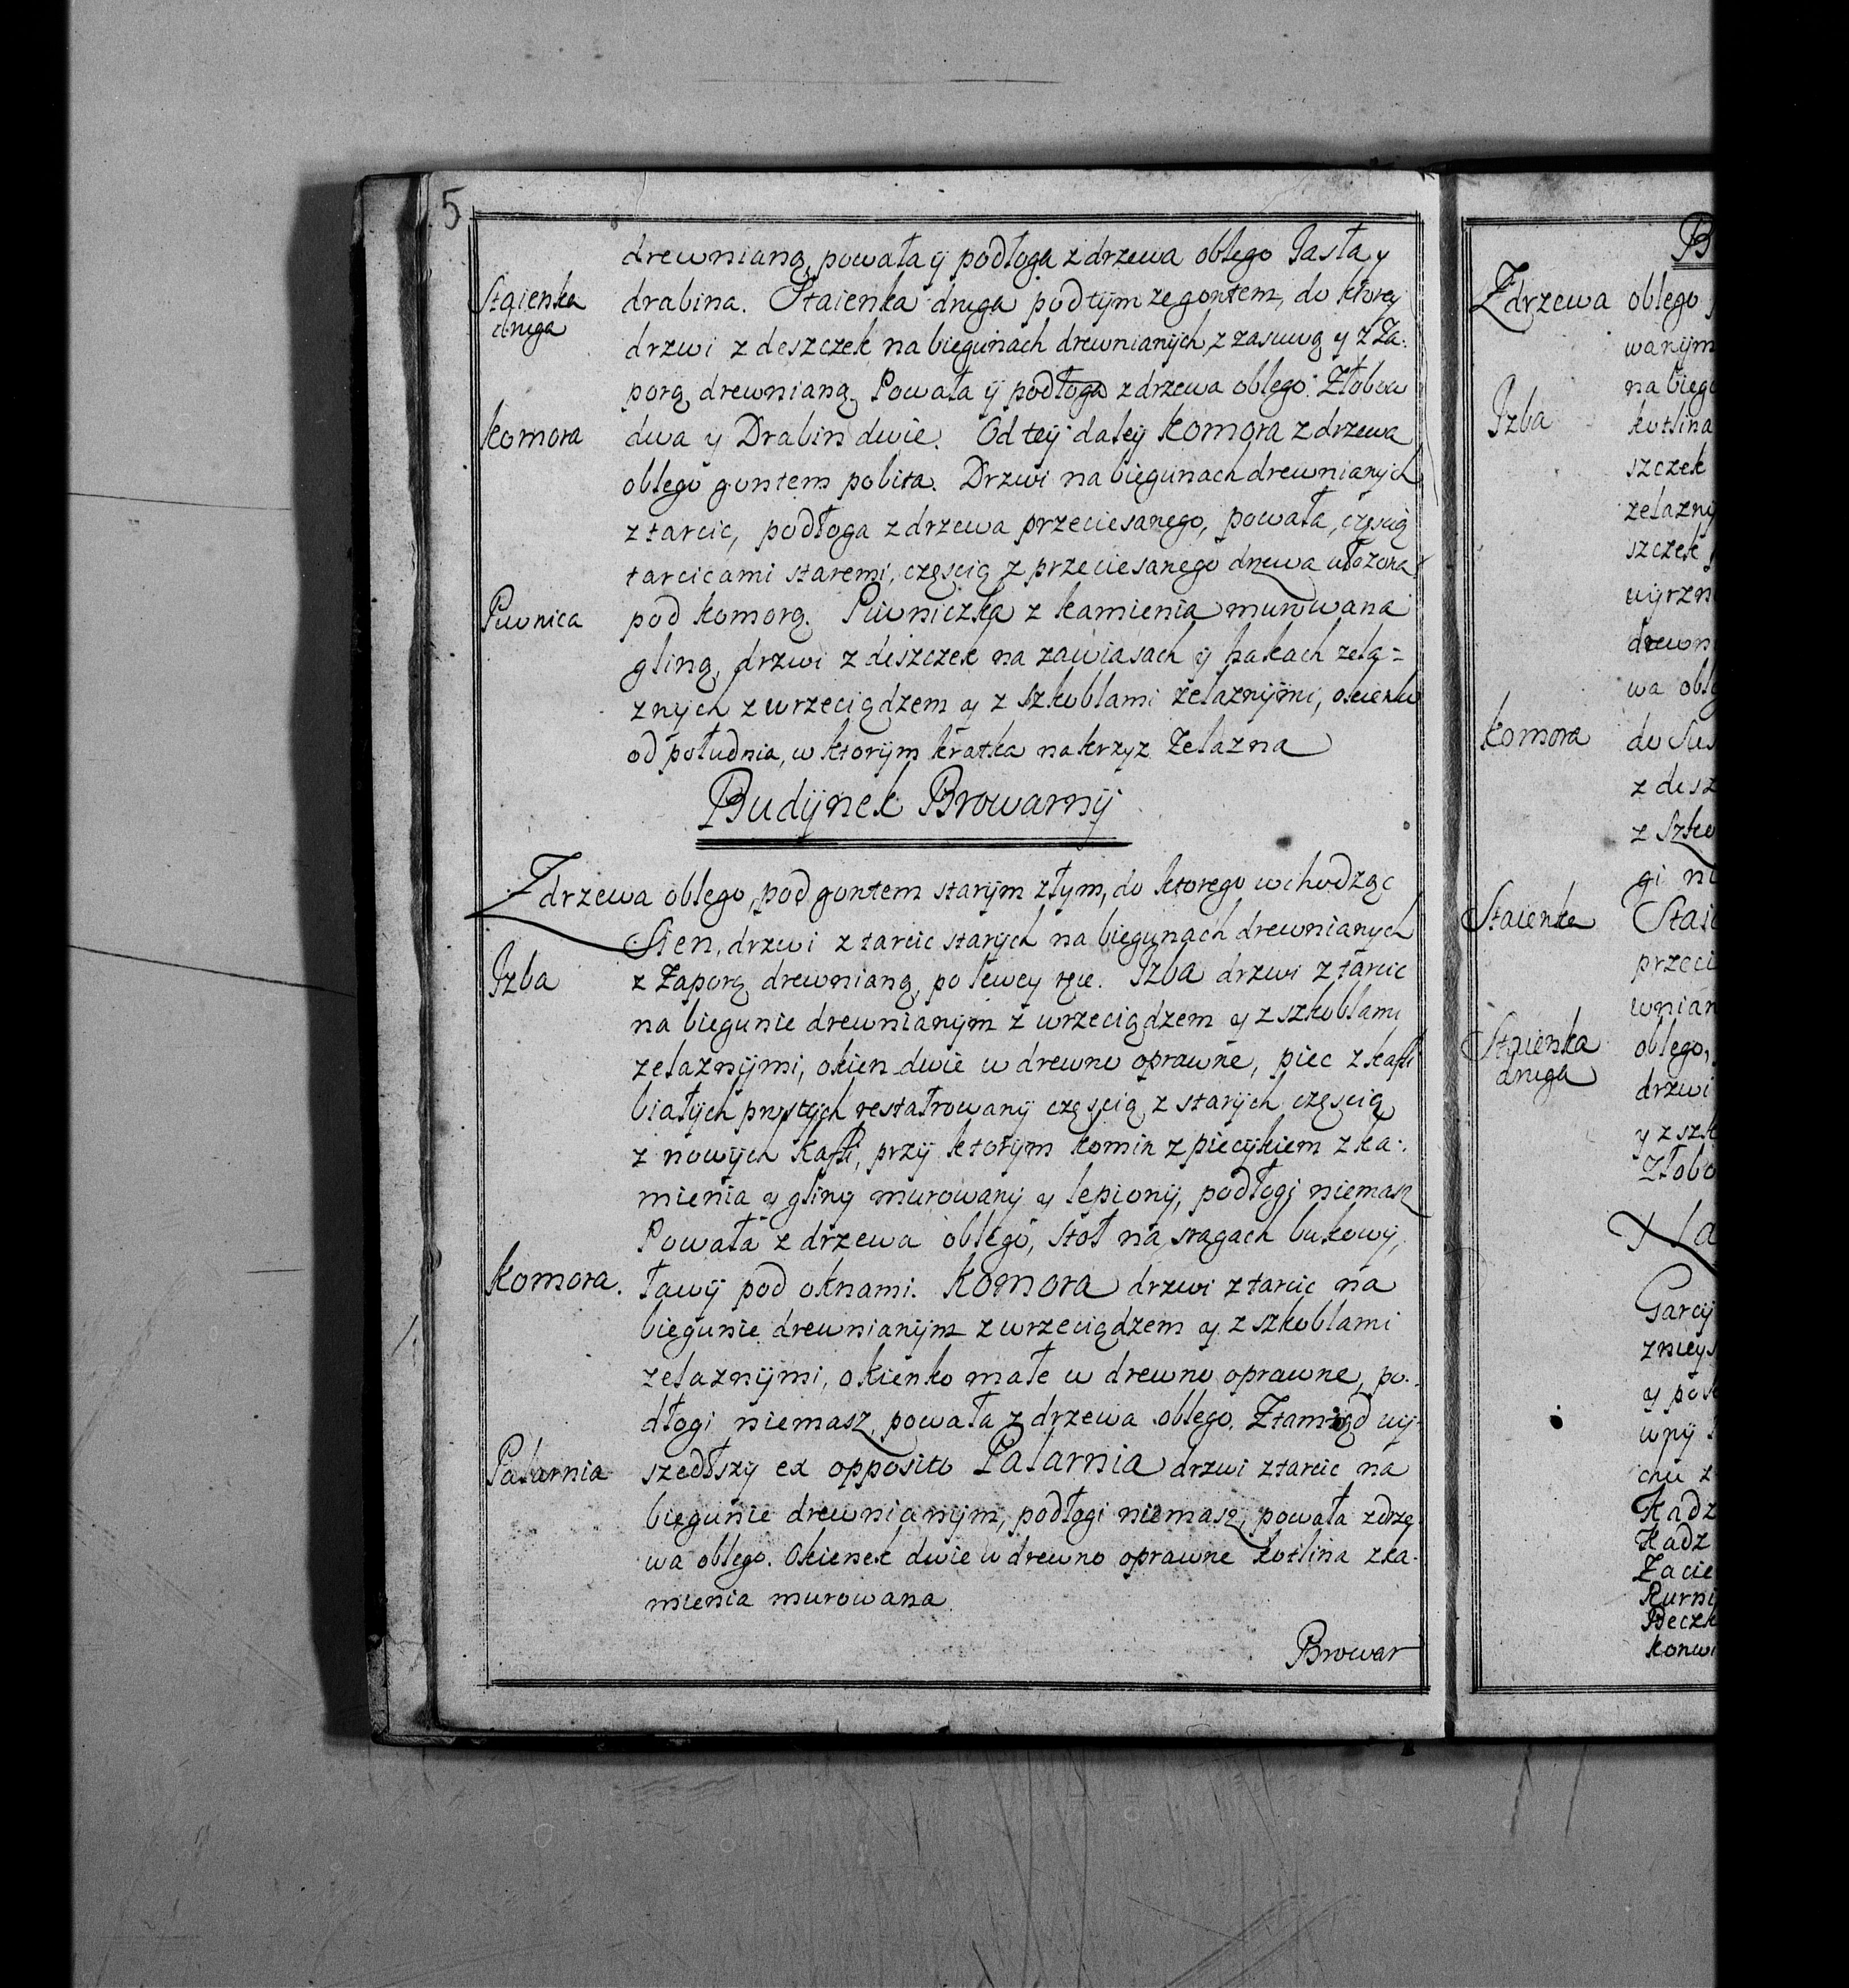 5
drewnianą, powała ÿ podłoga z drzewa oblego Jasła y
Staienka drabina. Staienka druga pod tÿm ze gontem, do ktorey
druga
drzwi z deszczek na biegunach drewnianÿch z zasuwą y z Za:
porą drewnianą. Powała ÿ podłoga z drzewa oblego. Złobow
Komora dwa y Drabin dwie. Od teÿ daleÿ Komora z drzewa
oblego gontem pobita. Drzwi na biegunach drewnianÿch
z tarcic, podłoga z drzewa przeciesanego, powała, częscią
tarcicami staremi, częscią z przeciesanego drzewa ułozona
Piwnica pod komorą. Piwniczka z kamienia murowana
gliną, drzwi z deszczek na zawiasach ÿ hakach zela=
znÿch z wrzeciądzem y z szkoblami żelaznÿmi, okienko
od południa, w ktorÿm kratka na krzyz Zelazna
Budÿnek Browarnÿ
Z drzewa oblego, pod gontem starÿm złym, do ktorego wchodząc
Sien, drzwi z tarcic starÿch na biegunach drewnianych
Izba z Zaporą drewnianą, po lewey ręce. Izba drzwi z tarcic
na biegunie drewnianÿm z wrzeciądzem y z szkoblami
zelaznÿmi, okien dwie w drewno oprawne, piec z kafli
białÿch prostÿch restałrowanÿ częscią z starÿch częscią
z nowÿch kafli, przÿ ktorÿm komin z piecÿkiem z ka:
mienia y glinÿ murowanÿ y lepionÿ, podłogi niemasz
Powała z drzewa oblego, stoł na sragach bukowÿ,
Komora. ławÿ pod oknami. Komora drzwi z tarcic na
biegunie drewnianÿm z wrzeciądzem y z szkoblami
zelaznÿmi, okienko małe w drewno oprawne, po:
dłogi niemasz, powała z drzewa oblego. Ztamtąd wÿ
Palarnia szedłszÿ ex opposito Palarnia drzwi z tarcic na
biegunie drewnianÿm, podłogi niemasz, powała z drze
wa oblego. Okienek dwie w drewno oprawne kotlina z ka:
mienia murowana
Browar
Z drzewa oblego
wanÿm
Izba kotlina
szczek
zelaznÿ
szczek
wÿrzn
drewn
Komora
z desz
z szko
Staienka
przeci
wnian
Staienka oblego,
druga drzwi
y z szk
Złobo
Garcÿ
Kadz
Kadz
Zacie
Kurni
Beczk
Konwi